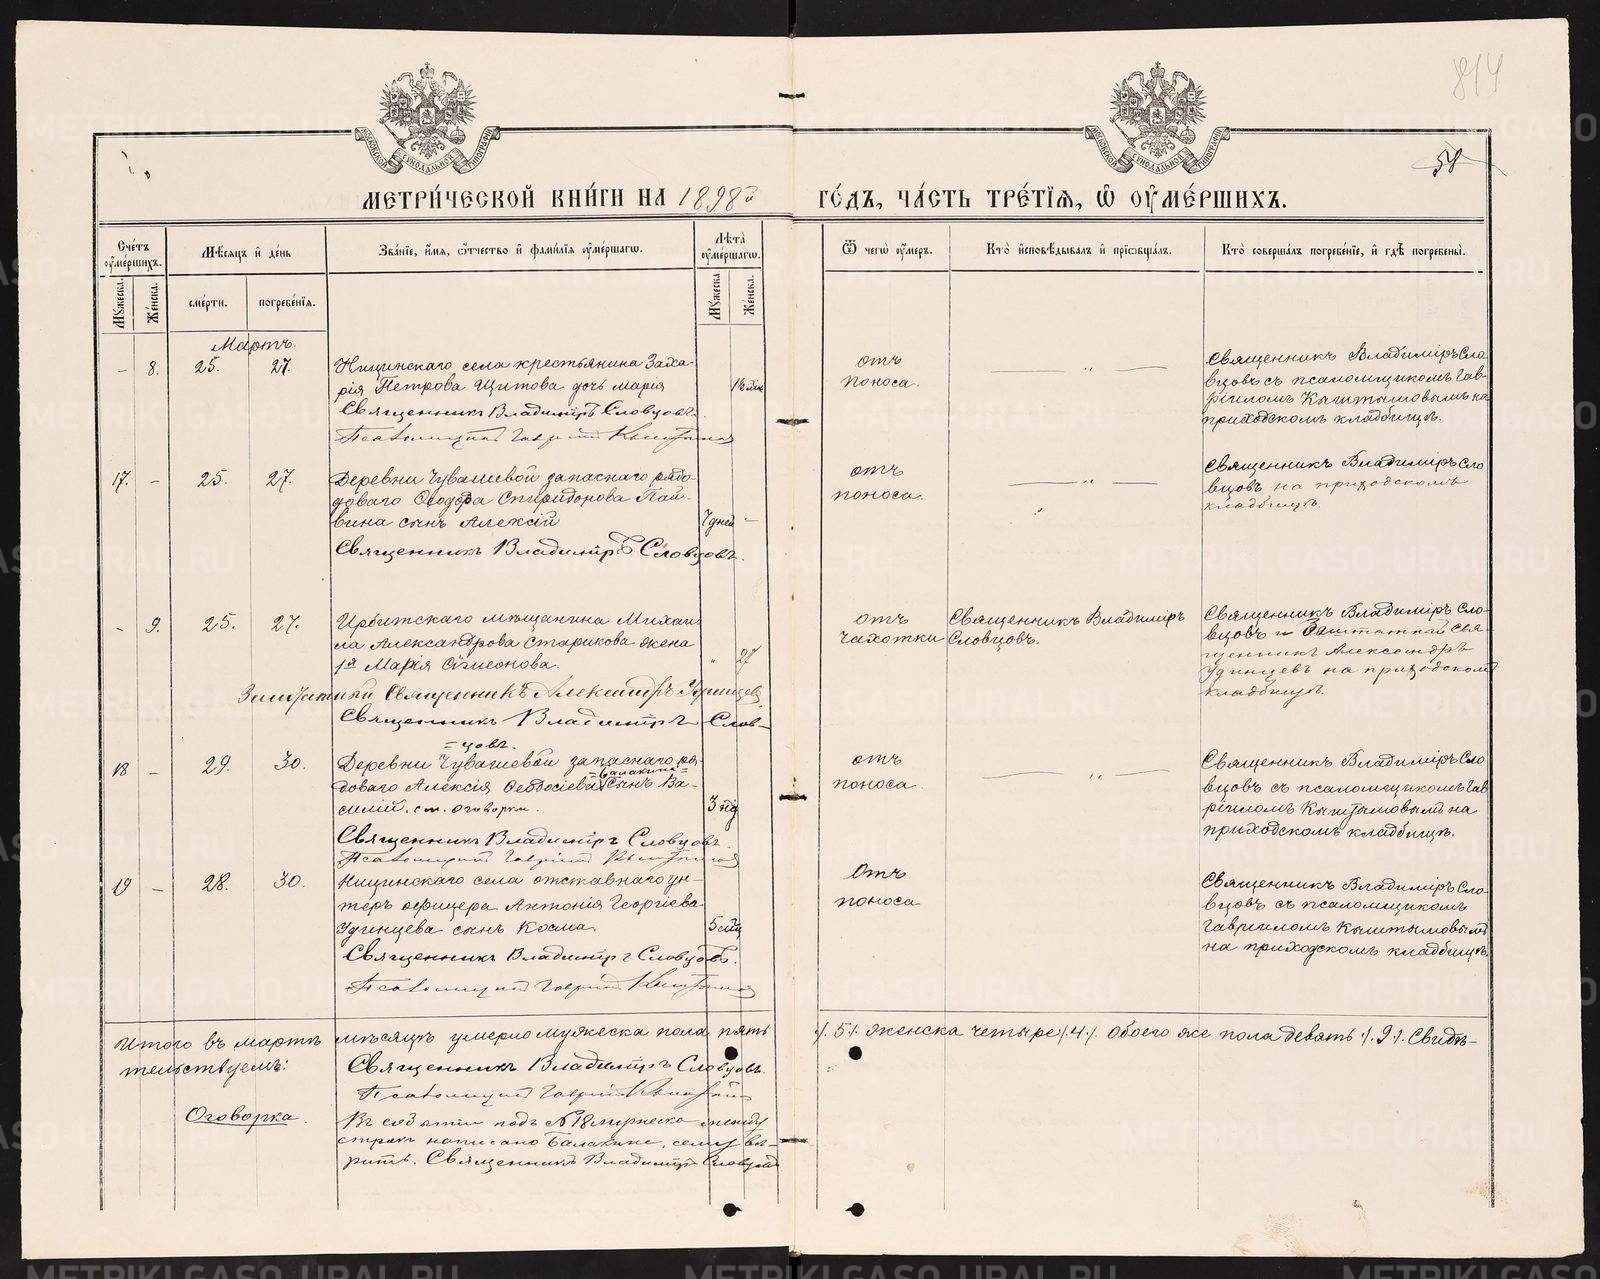 814
54
МОСКОВСКОЙ СѴНОДАЛЬНОЙ ТИПОГРАФІИ
МОСКОВСКОЙ СѴНОДАЛЬНОЙ ТИПОГРАФІИ
МЕТРИ́ЧЕСКОЙ КНИ́ГИ НА 1898й ГО́ДЪ, ЧА́СТЬ ТРЕ́ТІЯ, Ѿ ОУ҆МЕ́РШИХЪ.
Сче́тъ оу҆ме́ршихъ.
Мꙋ́жеска.
Же́нска.
Мѣ́сяцъ и҆ де́нь
сме́рти.
погребе́нїѧ.
Зва́нїе, и҆́мѧ, ѻ҆́тчество и҆ фамилїѧ оу҆ме́ршагѡ.
Лѣ́та̀ оу҆ме́ршагѡ.
Мꙋ́жеска
Же́нска.
Ѿ чегѡ̀ оу҆́меръ.
Кто̀ и҆сповѣ́дывалъ и҆ прїѡбща́лъ.
Кто̀ соверша́лъ погребе́нїе, и҆ гдѣ̀ погребены̀.
Мартъ.
– 8. 25. 27.
Ницинскаго села крестьянина Заха-
рія Петрова Щитова дочь Марія
Священникъ Владиміръ Словцовъ.
Псаломщикъ Гавріилъ Кыштымовъ
отъ
поноса.
Священникъ Владиміръ Сло-
вцовъ съ псаломщикомъ Гав-
ріиломъ Кыштымовымъ на
приходскомъ кладбищѣ.
17. – 25. 27.
Деревни Чувашевой запаснаго рядо-
доваго Ѳеодора Спиридонова Пай-
вина сынъ Алексій
7 дней –
Священникъ Владиміръ Словцовъ.
отъ
поноса.
Священникъ Владиміръ Сло
вцовъ на приходскомъ
кладбищѣ.
– 9. 25. 27.
Ирбитскаго мѣщанина Михаи-
ла Александрова Старикова жена
1я Марія Сѵмеонова.
" 27
Заштатный Священникъ Александръ Удинцевъ
Священникъ Владиміръ Слов-
=цовъ.
отъ
чахотки
Священникъ Владиміръ
Словцовъ.
Священникъ Владиміръ Сло-
вцовъ и Заштатный Свя-
щенникъ Александръ
Удинцевъ на приходскомъ
кладбищѣ.
18 – 29. 30.
Деревни Чувашевой запаснаго ря-
=Балакина=
доваго Алексія Ѳеодосіева сынъ Ва-
силій. см. оговорки.
3 нед
Священникъ Владиміръ Словцовъ.
Псаломщикъ Гавріилъ Кыштымовъ
отъ
поноса
Священникъ Владиміръ Сло
вцовъ съ псаломщикомъ Гав
ріиломъ Кыштымовымъ на
приходскомъ кладбищѣ.
19 – 28. 30.
Ницинскаго села отставнаго ун-
теръ офицера Антонія Георгіева
Удинцева сынъ Косма.
Священникъ Владиміръ Словцовъ.
Псаломщикъ Гавріилъ Кыштымовъ
Отъ
поноса
Священникъ Владиміръ Сло-
вцовъ съ псаломщикомъ
Гавріиломъ Кыштымовымъ
на приходскомъ кладбищѣ.
Итого въ мартѣ мѣсяцѣ умерло мужеска пола пять /. 5 /. женска четыре /. 4 /. обоего же пола девять /. 9 /. Свидѣ-
тельствуемъ:
Священникъ Владиміръ Словцовъ.
Псаломщикъ Гавріилъ Кыштымовъ
Оговорка.
Въ событіи подъ №18 мужеска между
строкъ написано Балакина, сему вѣ-
рить. Священникъ Владиміръ Словцовъ
METRIKI.GASO-URAL.RU